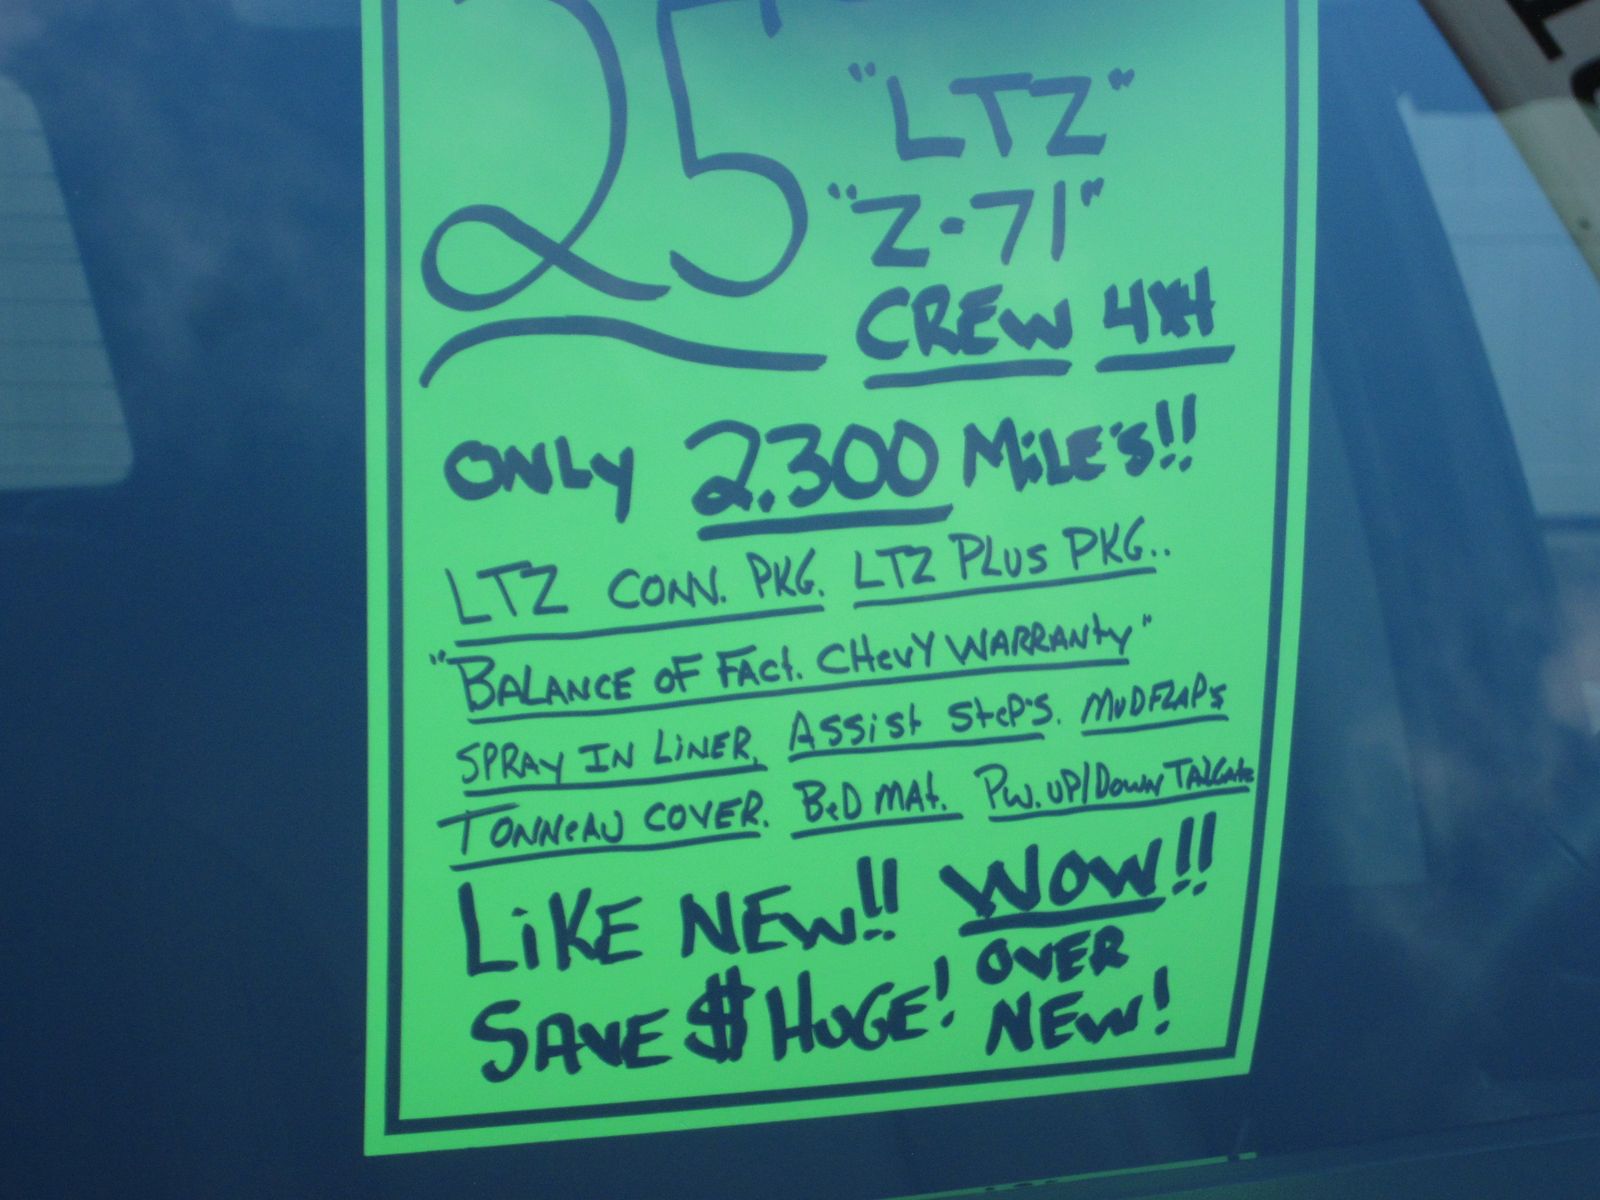 25
"LTZ"
"Z-71"
CREW 4X4
ONLY 2.300 MiLE'S!!
LTZ CONV. PKG. LTZ PLUS PKG..
"BALANCE OF FACt. CHEVY WARRANty"
SPRAY IN LiNER, ASSiSt StEP'S. MUDFLAP'S
TONNEAU COVER. BED MAt. PW. UP/DOWN TAILGAtE
LiKE NEW!! WOW!!
SAVE $ HUGE! OVER
NEW!